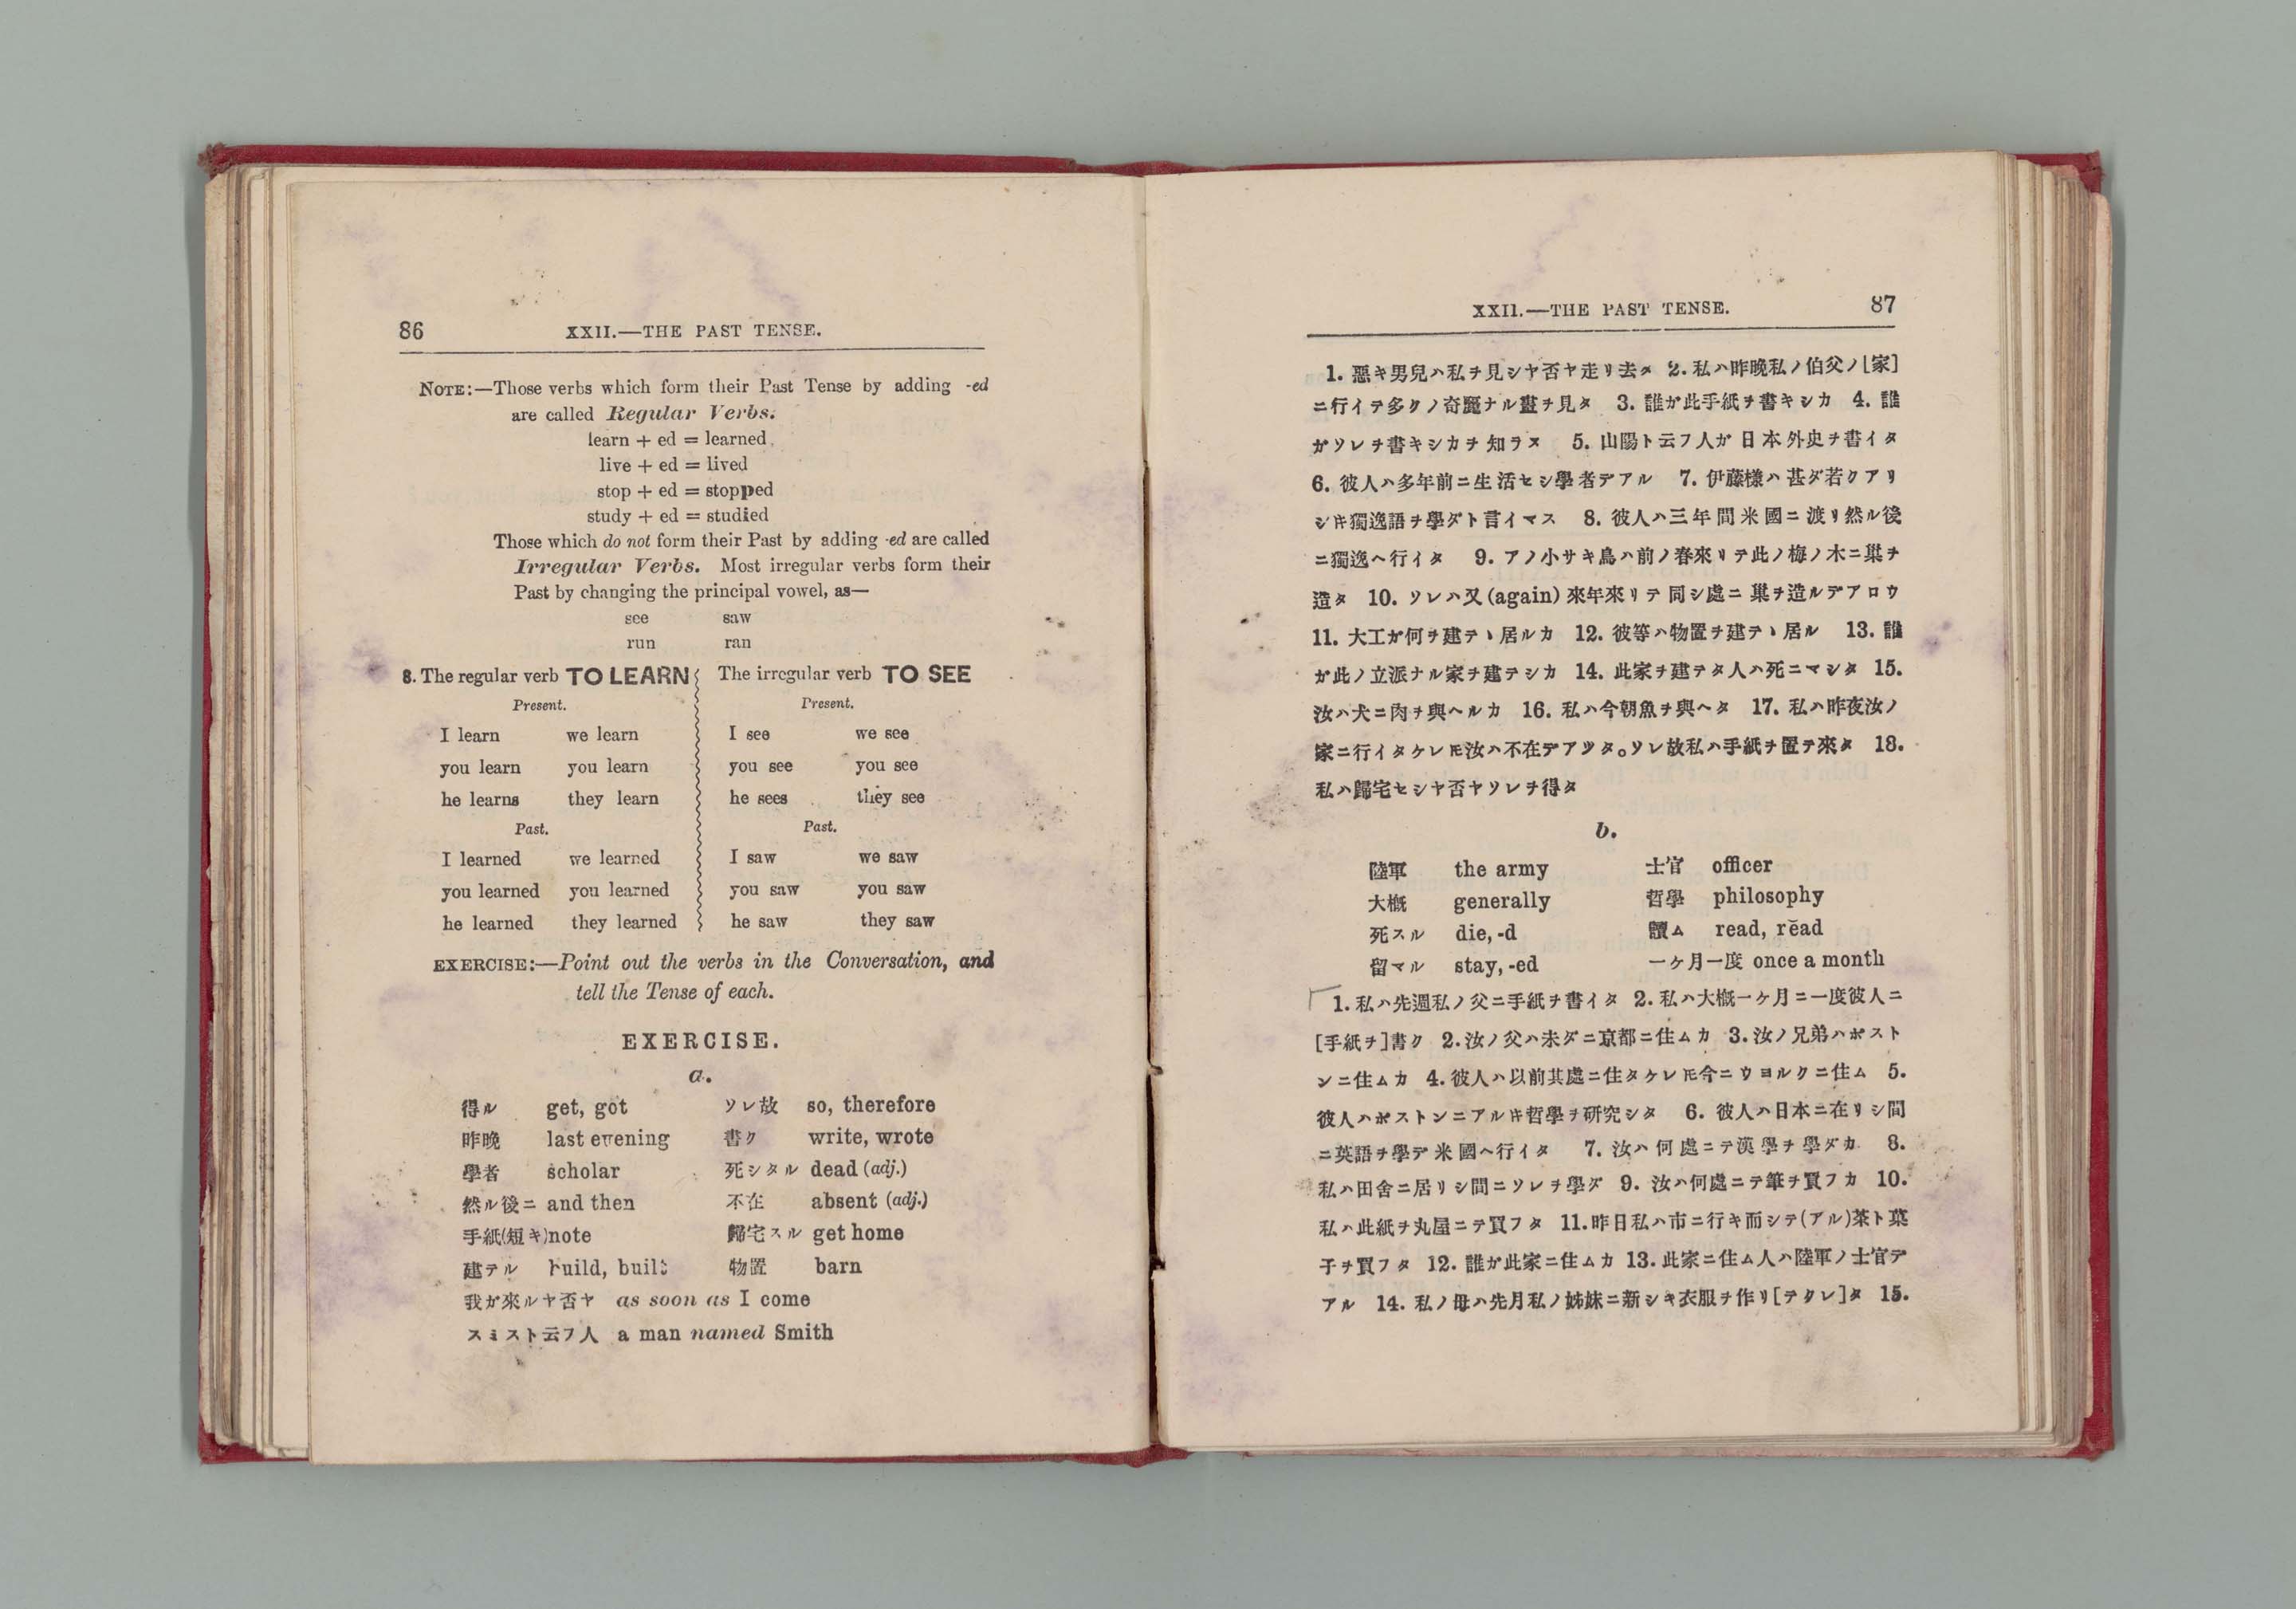 86 XXII.—THE PAST TENSE.
NOTE:—Those verbs which form their Past Tense by adding -ed
are called Regular Verbs.
learn + ed = learned
live + ed = lived
stop + ed = stopped
study + ed = studied
Those which do not form their Past by adding -ed are called
Irregular Verbs. Most irregular verbs form their
Past by changing the principal vowel, as—
see saw
run ran
8. The regular verb TO LEARN The irregular verb TO SEE
Present. Present.
I learn we learn I see we see
you learn you learn you see you see
he learns they learn he sees they see
Past. Past.
I learned we learned I saw we saw
you learned you learned you saw you saw
he learned they learned he saw they saw
EXERCISE:—Point out the verbs in the Conversation, and
tell the Tense of each.
EXERCISE.
a.
得ル get, got ソレ故 so, therefore
昨晩 last evening 書ク write, wrote
學者 scholar 死シタル dead (adj.)
然ル後ニ and then 不在 absent (adj.)
手紙(短キ)note 歸宅スル get home
建テル build, built 物置 barn
我ガ來ルヤ否ヤ as soon as I come
スミスト云フ人 a man named Smith
XXII.—THE PAST TENSE. 87
1. 惡キ男兒ハ私ヲ見シヤ否ヤ走リ去タ 2. 私ハ昨晩私ノ伯父ノ[家]
ニ行イテ多クノ奇麗ナル畫ヲ見タ 3. 誰ガ此手紙ヲ書キシカ 4. 誰
ガソレヲ書キシカヲ知ラヌ 5. 山陽ト云フ人ガ日本外史ヲ書イタ
6. 彼人ハ多年前ニ生活セシ學者デアル 7. 伊藤樣ハ甚ダ若クアリ
シキ獨逸語ヲ學ダト言イマス 8. 彼人ハ三年間米國ニ渡リ然ル後
ニ獨逸ヘ行イタ 9. アノ小サキ鳥ハ前ノ春來リテ此ノ梅ノ木ニ巢ヲ
造タ 10. ソレハ又(again)來年來リテ同シ處ニ巢ヲ造ルデアロウ
11. 大工ガ何ヲ建テヽ居ルカ 12. 彼等ハ物置ヲ建テヽ居ル 13. 誰
ガ此ノ立派ナル家ヲ建テシカ 14. 此家ヲ建テタ人ハ死ニマシタ 15.
汝ハ犬ニ肉ヲ與ヘルカ 16. 私ハ今朝魚ヲ與ヘタ 17. 私ハ昨夜汝ノ
家ニ行イタケレ𪜈汝ハ不在デアツタ。ソレ故私ハ手紙ヲ置テ來タ 18.
私ハ歸宅セシヤ否ヤソレヲ得タ
b.
陸軍 the army 士官 officer
大概 generally 哲學 philosophy
死スル die, -d 讀ム read, rĕad
留マル stay, -ed 一ケ月一度 once a month
1. 私ハ先週私ノ父ニ手紙ヲ書イタ 2. 私ハ大概一ケ月ニ一度彼人ニ
[手紙ヲ]書ク 2. 汝ノ父ハ未ダニ京都ニ住ムカ 3. 汝ノ兄弟ハボスト
ンニ住ムカ 4. 彼人ハ以前其處ニ住タケレ𪜈今ニウヨルクニ住ム 5.
彼人ハボストンニアルキ哲學ヲ研究シタ 6. 彼人ハ日本ニ在リシ間
ニ英語ヲ學デ米國ヘ行イタ 7. 汝ハ何處ニテ漢學ヲ學ダカ 8.
私ハ田舍ニ居リシ間ニソレヲ學ダ 9. 汝ハ何處ニテ筆ヲ買フカ 10.
私ハ此紙ヲ丸屋ニテ買フタ 11. 昨日私ハ市ニ行キ而シテ(アル)茶ト菓
子ヲ買フタ 12. 誰ガ此家ニ住ムカ 13. 此家ニ住ム人ハ陸軍ノ士官デ
アル 14. 私ノ母ハ先月私ノ姉妹ニ新シキ衣服ヲ作リ[テクレ]タ 15.